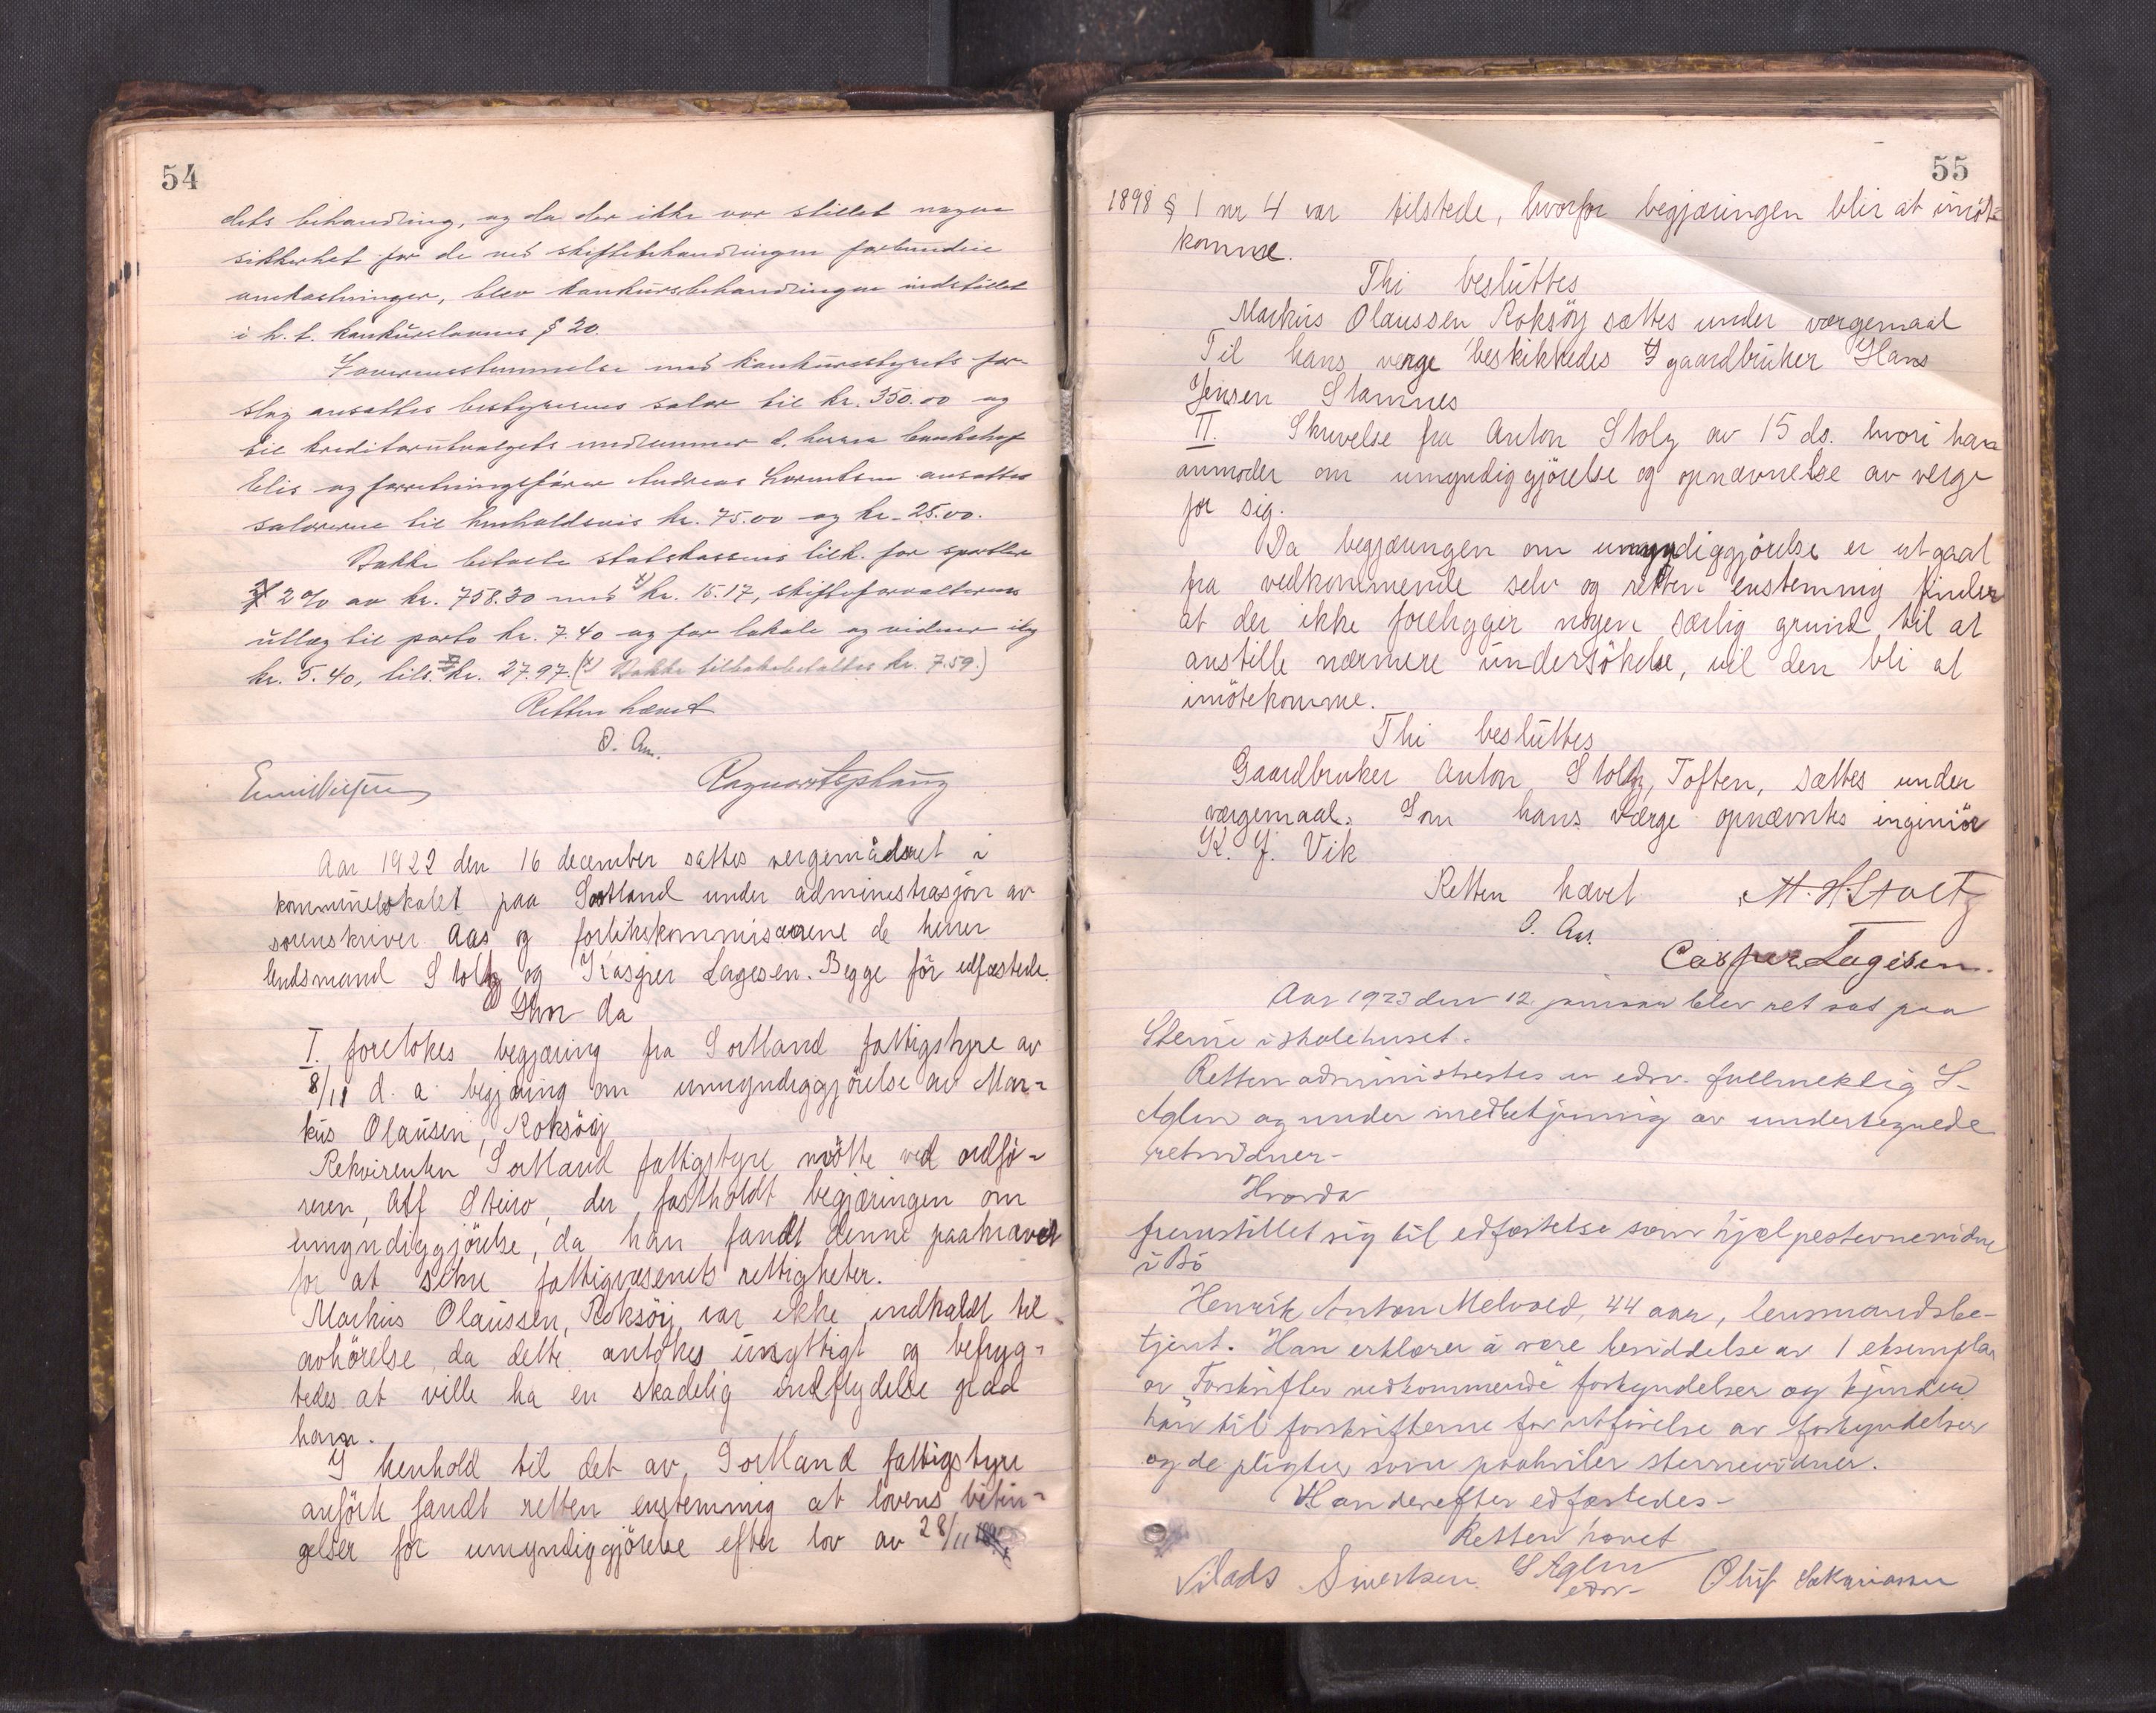 54
dets behandling, og da der ikke var stillet nogen
sikkerhet for de med skiftebehandlingen forbundne
omkostninger, blev konkursbehandlingen indstillet
i h. t. konkurslovens § 20.
I overensstemmelse med konkursstyrets for-
slag ansattes bestyrerens salær til kr. 350.00 og
til kreditorutvalgets medlemmer d. herrer bankchef
Elis og forretningsfører Andreas Lorentsen ansattes
salærerne til henholdsvis kr. 75.00 og kr. 25.00.
Bakke betalte statskassens tilk. for sportler
2 % av kr. 758.30 med x) kr. 15.17, skifteforvalterens
utlæg til porto kr. 7.40 og for lokale og vidner
kr. 5.40, tils. kr. 27.97. (x) Bakke tilbakebetaltes kr. 7.59.)
Retten hævet
O. Aas.
Aar 1922 den 16 december sattes vergemådsret i
kommunelokalet paa Sortland under administrasjon av
sorenskriver Aas og forlikskommisærene de herrer
lensmand Stoltz og Kasper Lagesen. Begge før edfæstede.
Hvor da
I. foretokes begjæring fra Sortland fattigstyre av
8/11 d. a. begjæring om umyndiggjörelse av Mar-
kus Olausen, Roksöy
Rekvirenten Sortland fattigstyre mötte ved ordfö-
reren, Alf Steiro, der fastholdt begjæringen om
umyndiggjörelse, da han fandt denne paakrævet
for at sikre fattigvæsenets rettigheter.
Markus Olaussen, Roksöy var ikke indkaldt til
avhörelse da dette antokes unyttigt og befryg-
tedes at ville ha en skadelig indflydelse paa
ham.
I henhold til det av Sortland fattigstyre
anförte fandt retten enstemmig at lovens betin-
gelser for umyndiggjörelse efter lov av 28/11
55
1898 § 1 nr 4 var tilstede, hvorfor begjæringen blir at imöte-
komme.
Thi besluttes
Markus Olaussen Roksöy sættes under værgemaal
Til hans verge beskikkedes gaardbruker Hans
Jensen Stamnes
II. Skrivelse fra Anton Stolz av 15 ds. hvori han
anmoder om umyndiggjörelse og opnævnelse av verge
for sig.
Da begjæringen om umyndiggjörelse er utgaat
fra vedkommende selv og retten enstemmig finder
at der ikke foreligger nogen særlig grund til at
anstille nærmere undersökelse, vil den bli at
imötekomme.
Thi besluttes
Gaardbruker Anton Stoltz, Toften, sættes under
værgemaal. Som hans værge opnævntes ingeniör
K. J. Vik
Retten hævet M. H. Stoltz
O. Aas.
Casper Lagesen.
Aar 1923 den 12. januar blev ret sat paa
Steine i skolehuset.
Retten administrertes av edsv. fullmektig S.
Aglen og under medbetjening av undertegnede
retsvidner-
Hvorda
fremstillet sig til edfæstelse som hjælpestevnevidne
i Bö
Henrik Anton Melvold, 44 aar, lensmandsbe-
tjent. Han erklærer å være besiddelse av 1 eksemplar
av "Forskrifter vedkommende" forkyndelser og kjender
han til forskrifterne for utförelse av forkyndelser
og de pligter som paahviler stevnevidner.
Han derefter edfæstedes-
Retten hævet
S Aglen
edsv-
Nilads Sivertsen. Oluf Sakariassen